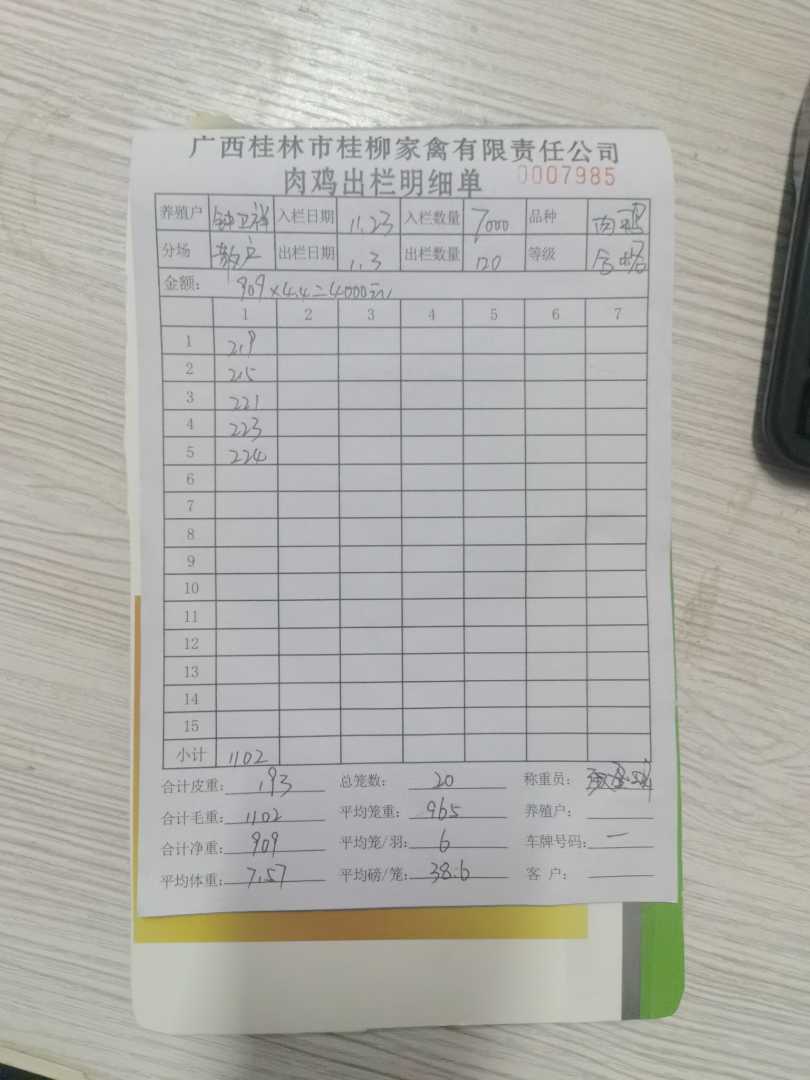 广西桂林市桂柳家禽有限责任公司
肉鸡出栏明细单 0007985
养殖户 钟卫祥 入栏日期 11.23 入栏数量 7000 品种 肉鸡
分场 散户 出栏日期 1.3 出栏数量 120 等级
金额: 909×4.4=4000元
1 2 3 4 5 6 7
1 219
2 215
3 221
4 223
5 224
6
7
8
9
10
11
12
13
14
15
小计 1102
合计皮重: 193 总笼数: 20 称重员:
合计毛重: 1102 平均笼重: 965 养殖户:
合计净重: 909 平均笼/羽: 6 车牌号码: 一
平均体重: 7.57 平均磅/笼: 38.6 客 户: